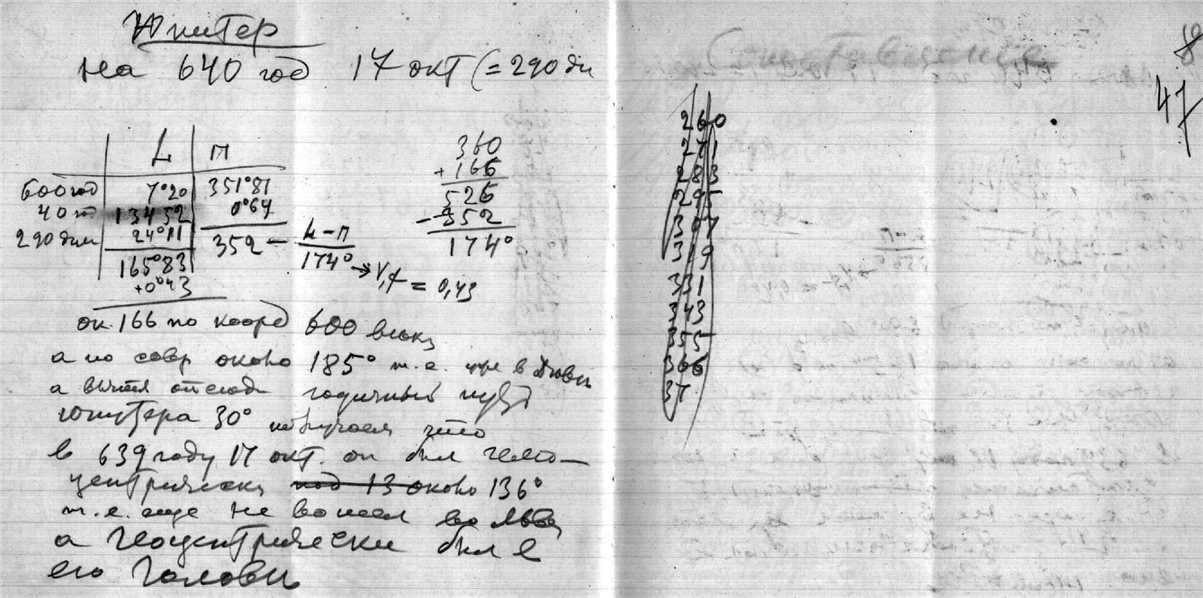 Юпитер
на 640 год 17 окт (= 290 дн
L П
600 год 7°20 351°81
40 13452 0°64
290 дни 24°11 352 —
165°83
+0°43
L-П
174° → = 0,43
360
+ 166
526
- 352
174°
ок. 166 по коорд 600
а по совр около 185° т.е.
а годичный
Юпитера 30° получаем что
в 639 году 17 окт. он был гелио-
центрически около 136°
т.е. еще не вошел во Льва
а геоцентрически был в
его голове
260
271
283
295
307
319
331
343
355
366
37
47